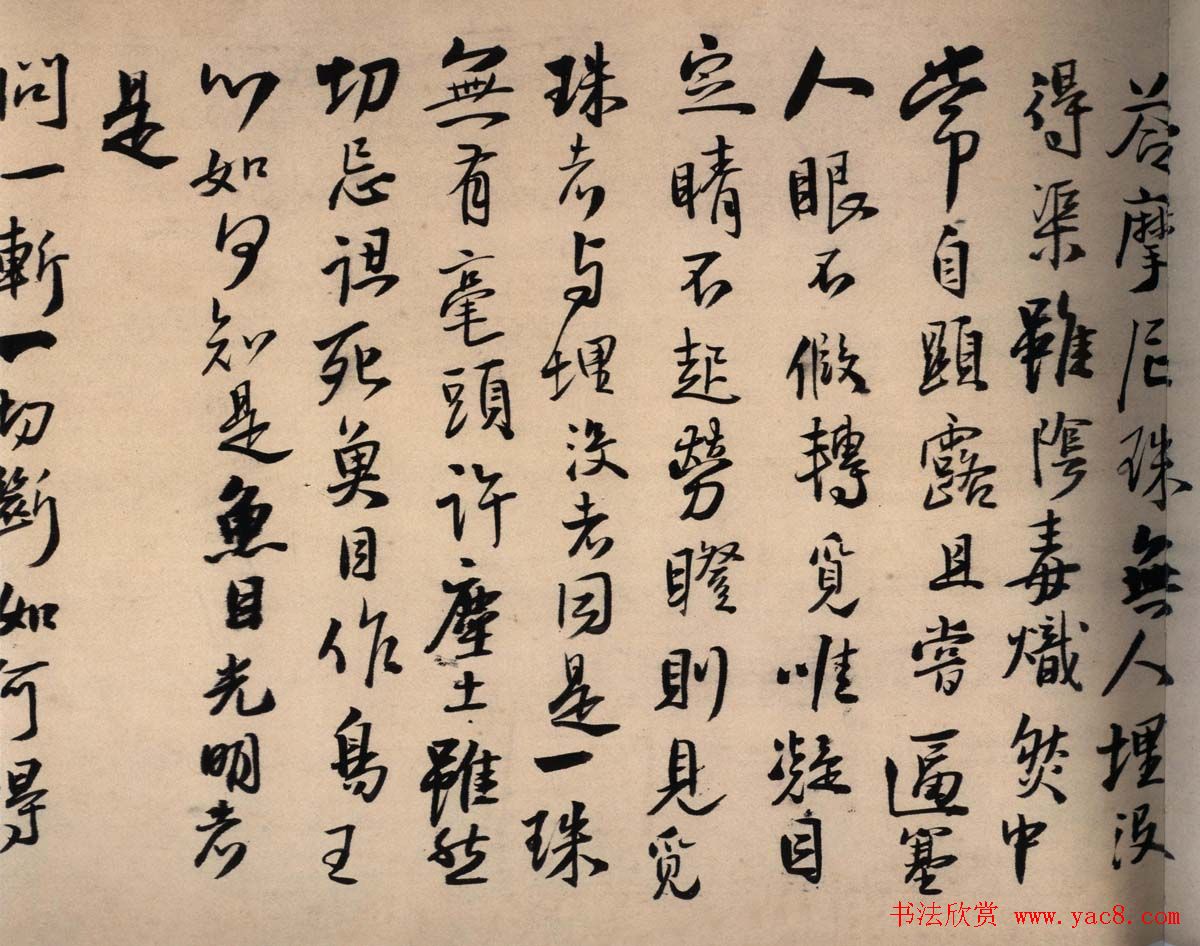 荅摩尼珠無人埋没
得渠雖陰毒熾然中
常自顯露且嘗逼塞
人眼不假轉覓唯凝目
定睛不起勞瞪則見覓
珠者與埋没者同是一珠
無有毫頭許塵土雖然
切忌誤死魚目作馬王
以如何知是魚目光明者
是
問一斬一切斷如何得
书法欣赏 www.yac8.com